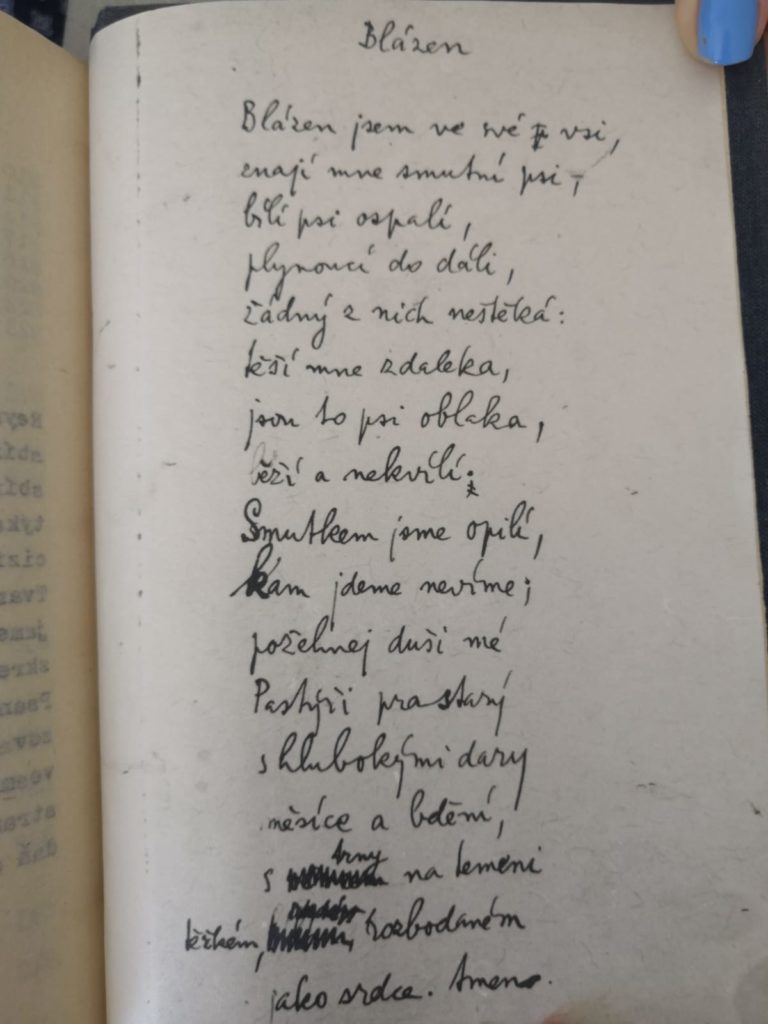 Blázen
Blázen jsem ve své vsi,
znají mne smutní psi,
bílí psi ospalí,
plynoucí do dáli,
žádný z nich neštěká:
těší mne zdaleka,
jsou to psi oblaka,
běží a nekvílí.
Smutkem jsme opilí,
kam jdeme nevíme;
požehnej duši mé
Pastýři prastarý
s hlubokými dary
měsíce a bdění,
s trny na temeni
těžkém, rozbodaném
jako srdce. Amen.